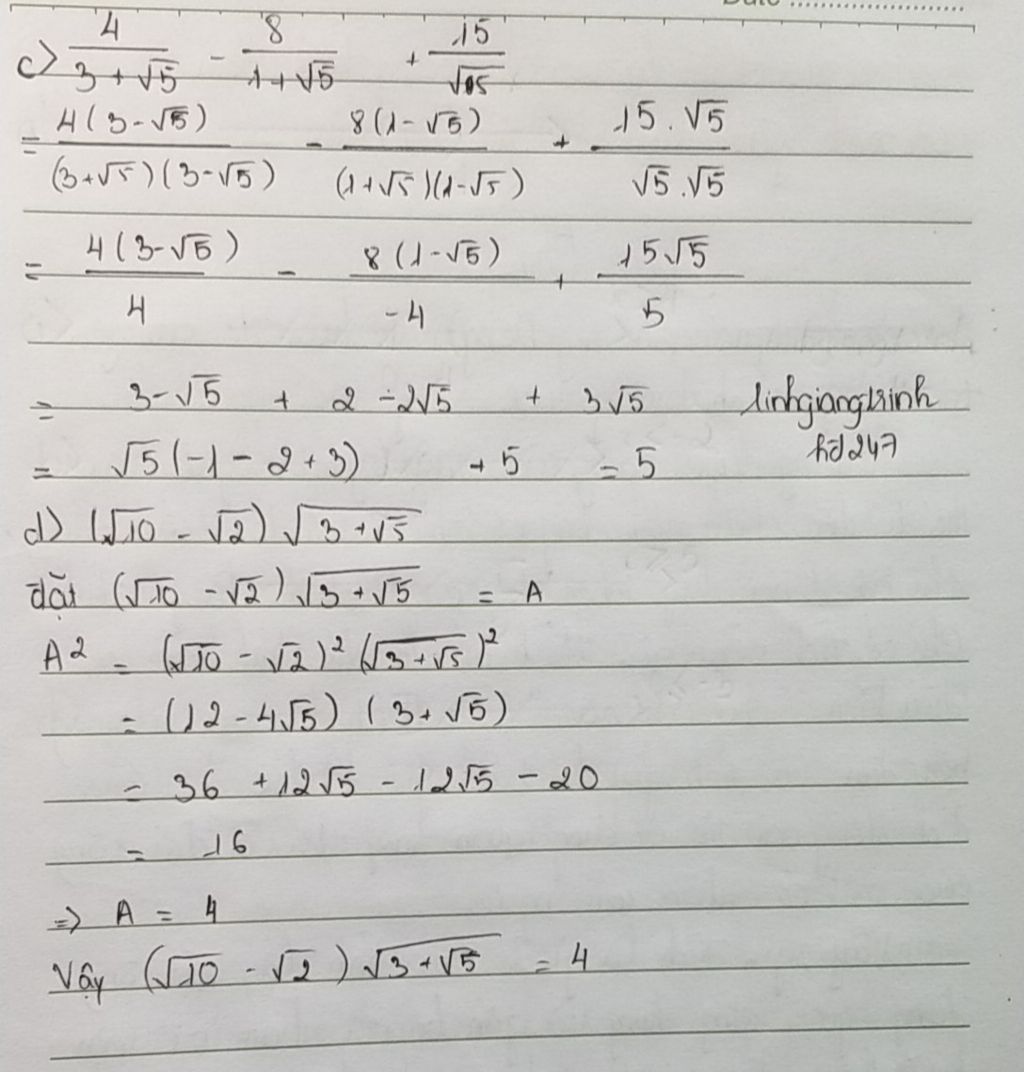 Date ..........................
c) 4/(3 + √5) - 8/(1 + √5) + 15/√5
= 4(3 - √5)/((3 + √5)(3 - √5)) - 8(1 - √5)/((1 + √5)(1 - √5)) + 15 . √5/(√5 . √5)
= 4(3 - √5)/4 - 8(1 - √5)/-4 + 15√5/5
= 3 - √5 + 2 - 2√5 + 3√5 linhgiangtrinh
= √5(-1 - 2 + 3) + 5 = 5 hd247
d) (√10 - √2) √(3 + √5)
đặt (√10 - √2) √(3 + √5) = A
A² = (√10 - √2)² (√(3 + √5))²
= (12 - 4√5) (3 + √5)
= 36 + 12√5 - 12√5 - 20
= 16
=> A = 4
Vậy (√10 - √2) √(3 + √5) = 4